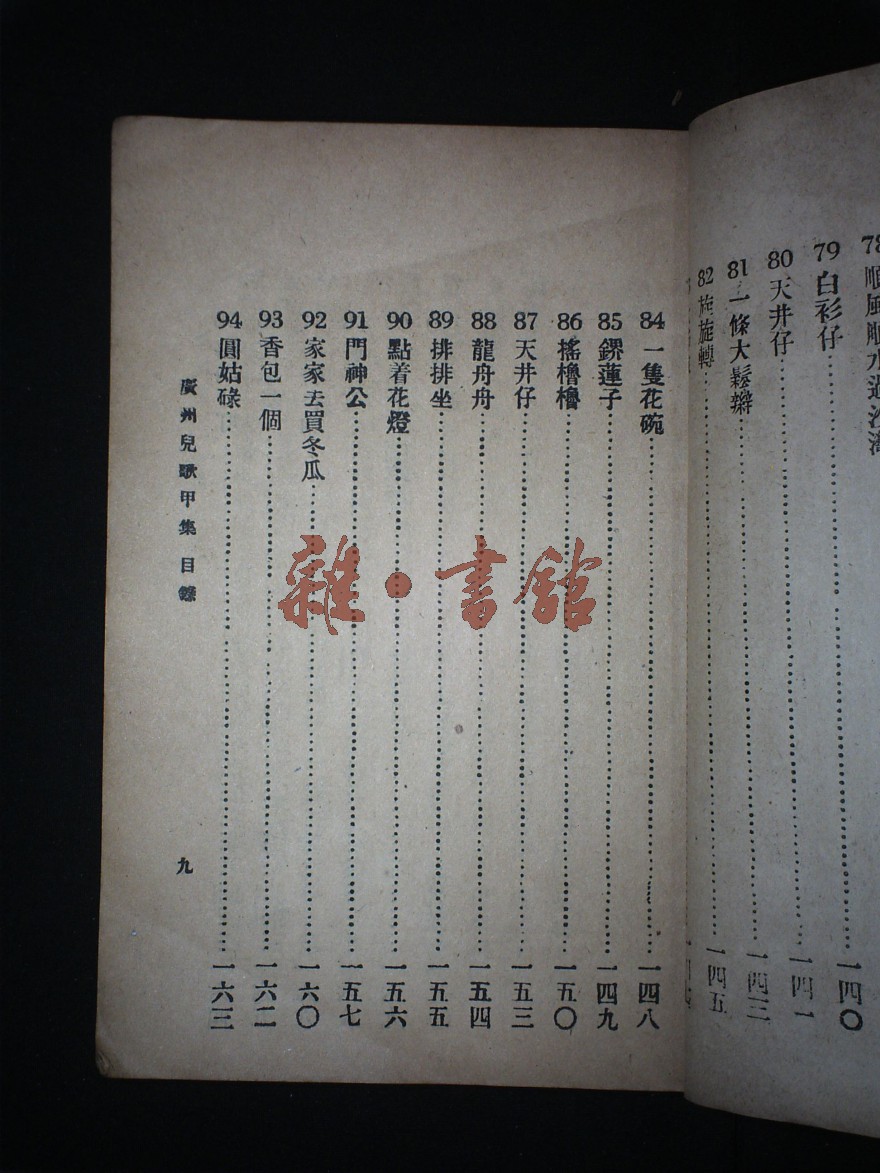 78 順風順水過沙灣
79 白衫仔 一四〇
80 天井仔 一四一
81 一條大鬆辮 一四三
82 旋旋轉 一四五
84 一隻花碗 一四八
85 鏍蓮子 一四九
86 搖櫓櫓 一五〇
87 天井仔 一五三
88 龍舟舟 一五四
89 排排坐 一五五
90 點着花燈 一五六
91 門神公 一五七
92 家家去買冬瓜 一六〇
93 香包一個 一六二
94 圓姑碌 一六三
廣州兒歌甲集 目錄
九
雜·書館